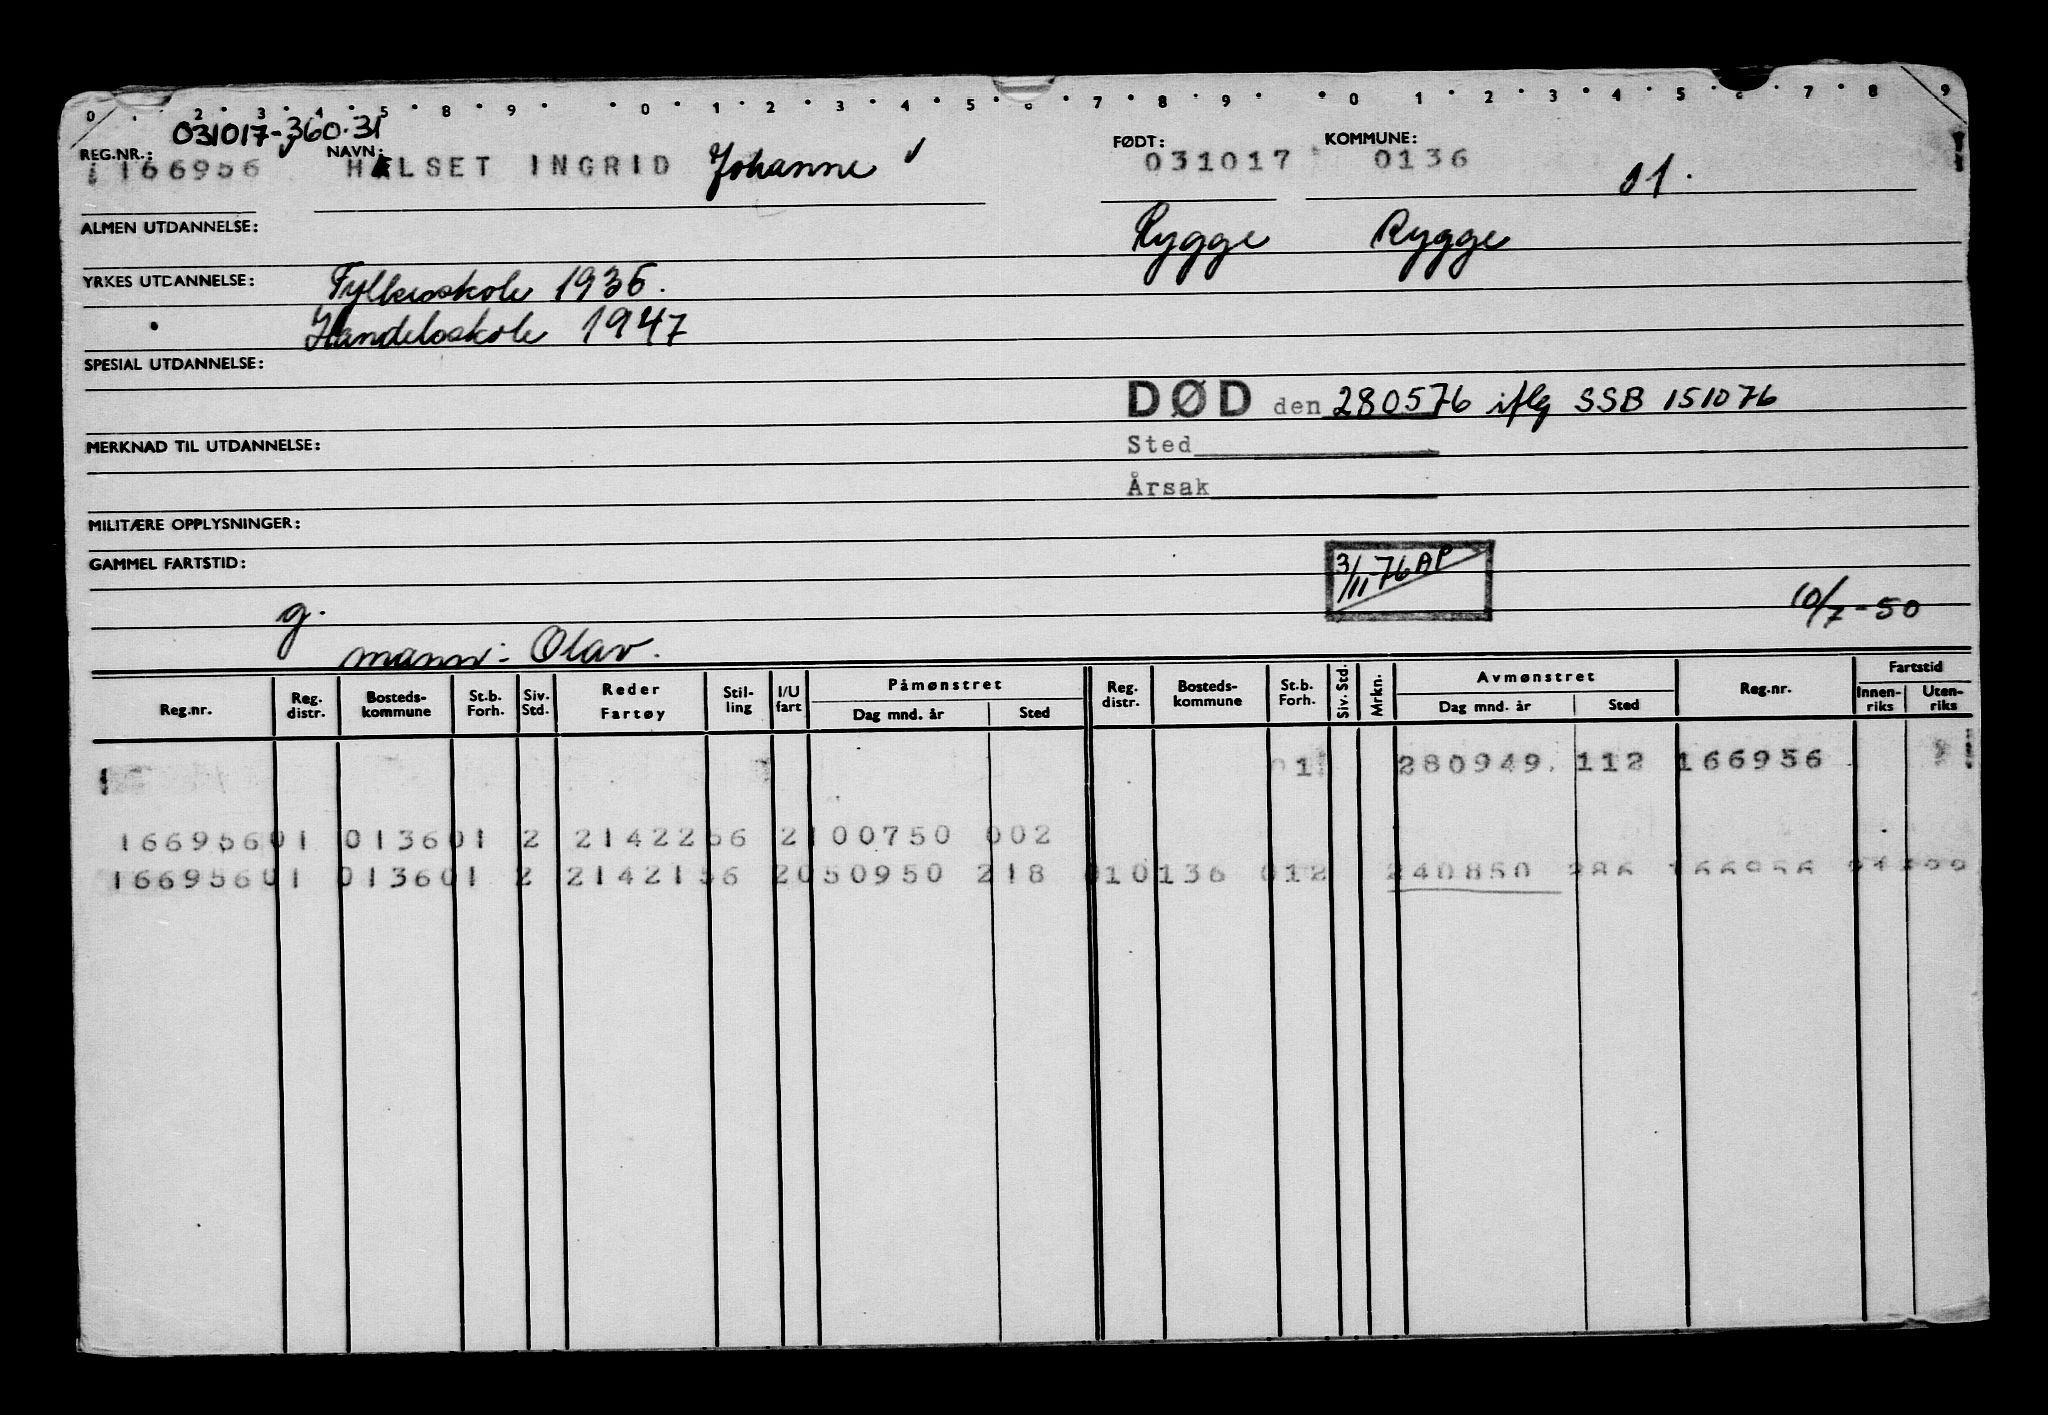 0 2 3 4 5 8 9 0 1 2 3 4 5 6 7 8 9 0 1 2 3 4 5 6 7 8 9
031017-360.31
REG.NR.: NAVN: FØDT: KOMMUNE:
166956 HALSET INGRID Johanne 031017 0136 01.
ALMEN UTDANNELSE: Rygge Rygge
YRKES UTDANNELSE: Fylkesskole 1936.
Handelsskole 1947
SPESIAL UTDANNELSE:
DØD den 280576 iflg SSB 151076
MERKNAD TIL UTDANNELSE: Sted
Årsak
MILITÆRE OPPLYSNINGER:
GAMMEL FARTSTID: 3/11-76 AP
g. 10/7-50
mann: Olav.
Reg.nr. Reg. distr. Bosteds-kommune St.b. Forh. Siv. Std. Reder Fartøy Stil-ling I/U fart Påmønstret Dag mnd. år Sted Reg. distr. Bosteds-kommune St.b. Forh. Siv. Std. Mrkn. Avmønstret Dag mnd. år Sted Reg.nr. Fartstid Innen-riks Uten-riks
1 280949. 112 166956
16695601 013601 2 2142256 2100750 002
16695601 013601 2 2142156 2050950 218 010136 012 240850 286 166956